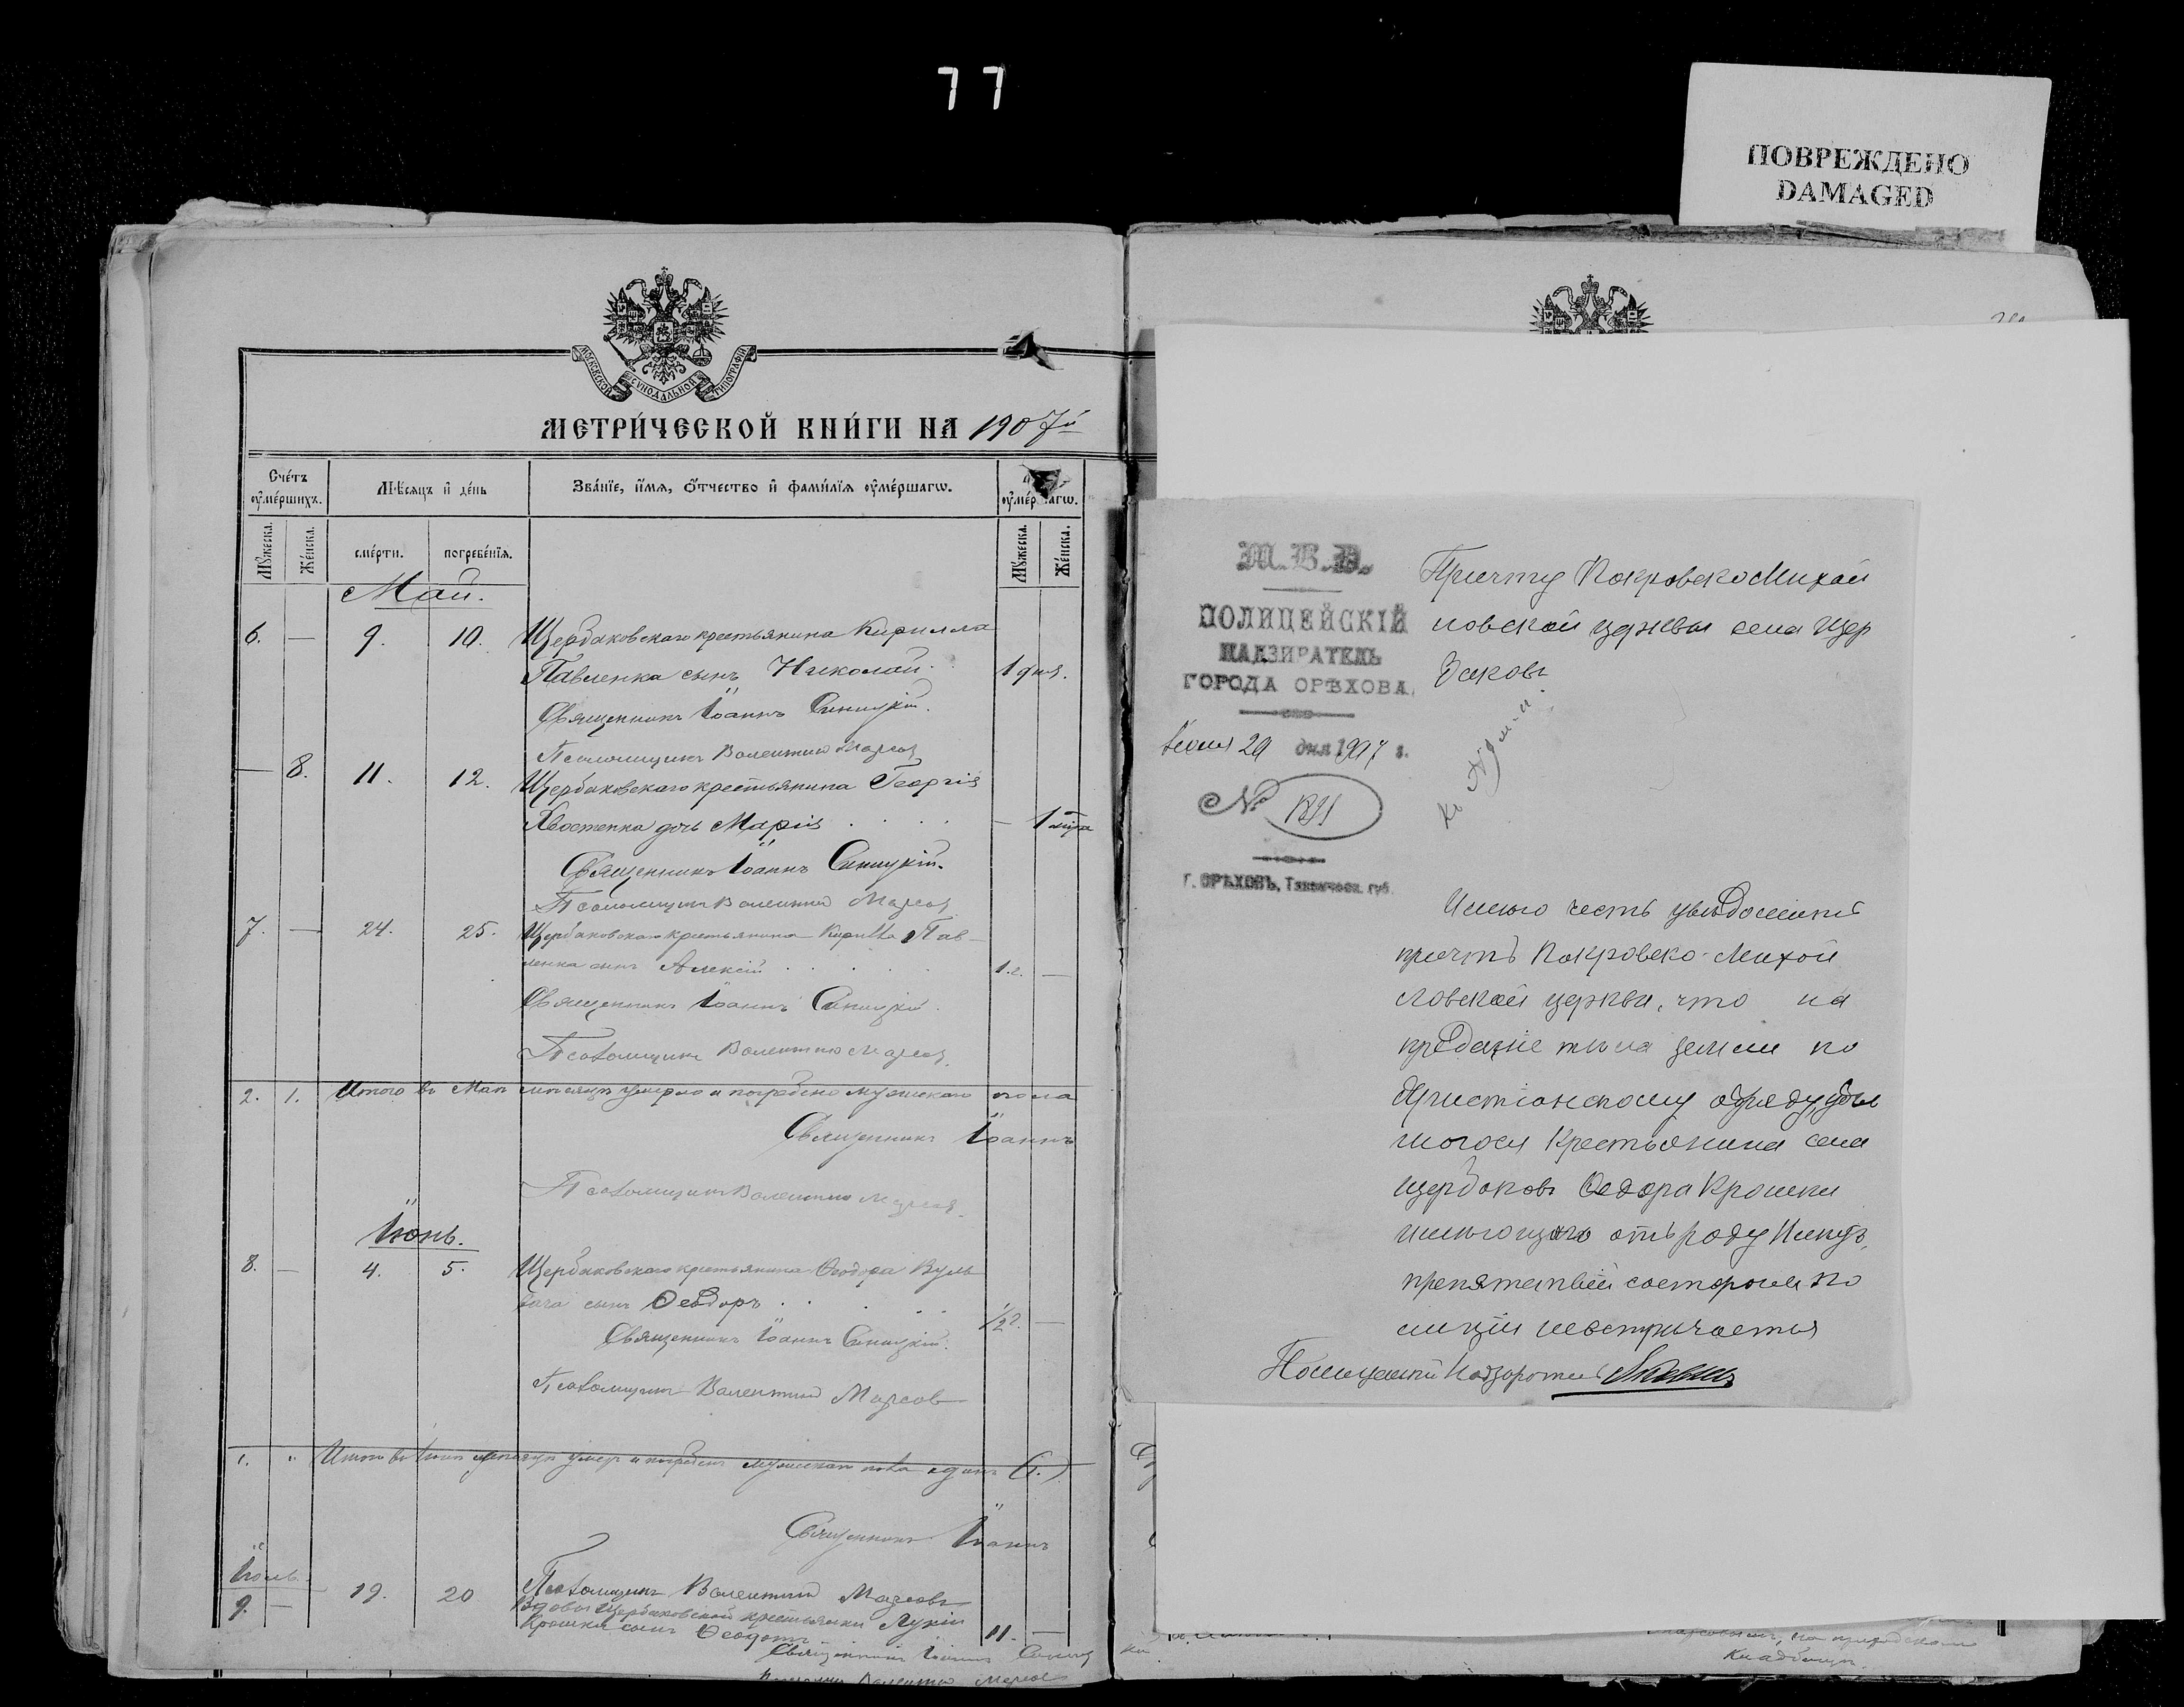 77
ПОВРЕЖДЕНО
DAMAGED
МОСКОВСКОЙ СѴНОДАЛЬНОЙ ТИПОГРАФІИ
МЕТРИ́ЧЕСКОЙ КНИ́ГИ НА 1907й
Сче́тъ оумéршихъ.
Мѣ́сяцъ и҆ де́нь
Зва́нїе, и҆́мѧ, ѻ҆́тчество и҆ фами́лїѧ оу҆ме́ршагѡ.
оу҆ме́ршагѡ.
Мꙋ́жеска. Же́нска. сме́рти. погребе́нїѧ. Мꙋ́жеска. Же́нска.
Май.
6. — 9. 10. Щербаковскаго крестьянина Кирилла
Павленка сынъ Николай. 1 дня.
Священникъ Іоаннъ Синицкій.
Псаломщикъ Валентинъ
— 8. 11. 12. Щербаковскаго крестьянина Георгія
Хвостенка дочь Марія . . . . — 1
Священникъ Іоаннъ Синицкій.
Псаломщикъ Валентинъ
7. — 24. 25. Щербаковскаго крестьянина Кирилла Пав-
ленка сынъ Алексій . . . . . 1 г. —
Священникъ Іоаннъ Синицкій.
Псаломщикъ Валентинъ
2. 1. Итого въ Маѣ мѣсяцѣ умерло и погребено мужскаго пола
Священникъ Іоаннъ
Псаломщикъ Валентинъ
Іюнь.
8. — 4. 5. Щербаковскаго крестьянина Ѳеодора Куль
бача сынъ Ѳеодоръ . . . . . 1/2 г. —
Священникъ Іоаннъ Синицкій.
Псаломщикъ Валентинъ
1. " Итого въ Іюнѣ мѣсяцѣ умеръ и погребенъ мужскаго пола одинъ (1.)
Священникъ Іоаннъ
Псаломщикъ Валентинъ
Іюль.
9. — 19. 20 Вдовы Щербаковской крестьянки Лукіи
Крошка сынъ Ѳеодотъ 11. —
Священникъ Іоаннъ Синиц
Псаломщикъ Валентинъ
М.В.Д.
ПОЛИЦЕЙСКІЙ
НАДЗИРАТЕЛЬ
ГОРОДА ОРѢХОВА,
Іюля 29 дня 1907 г.
№
Г. ОРѢХОВЪ, Таврическ. губ.
Причту Покровско Михай
ловской церкви села Щер
баковъ
Имѣю честь увѣдомить
причтъ Покровско-Михай
ловской церкви, что на
преданіе тѣла землѣ по
христіанскому обряду,
крестьянина села
Щербаковъ Ѳедора Крошки
имѣющаго отъ роду
препятствій со стороны по
лиціи невстрѣчается
Полицейскій Надзиратель
кладбищѣ.